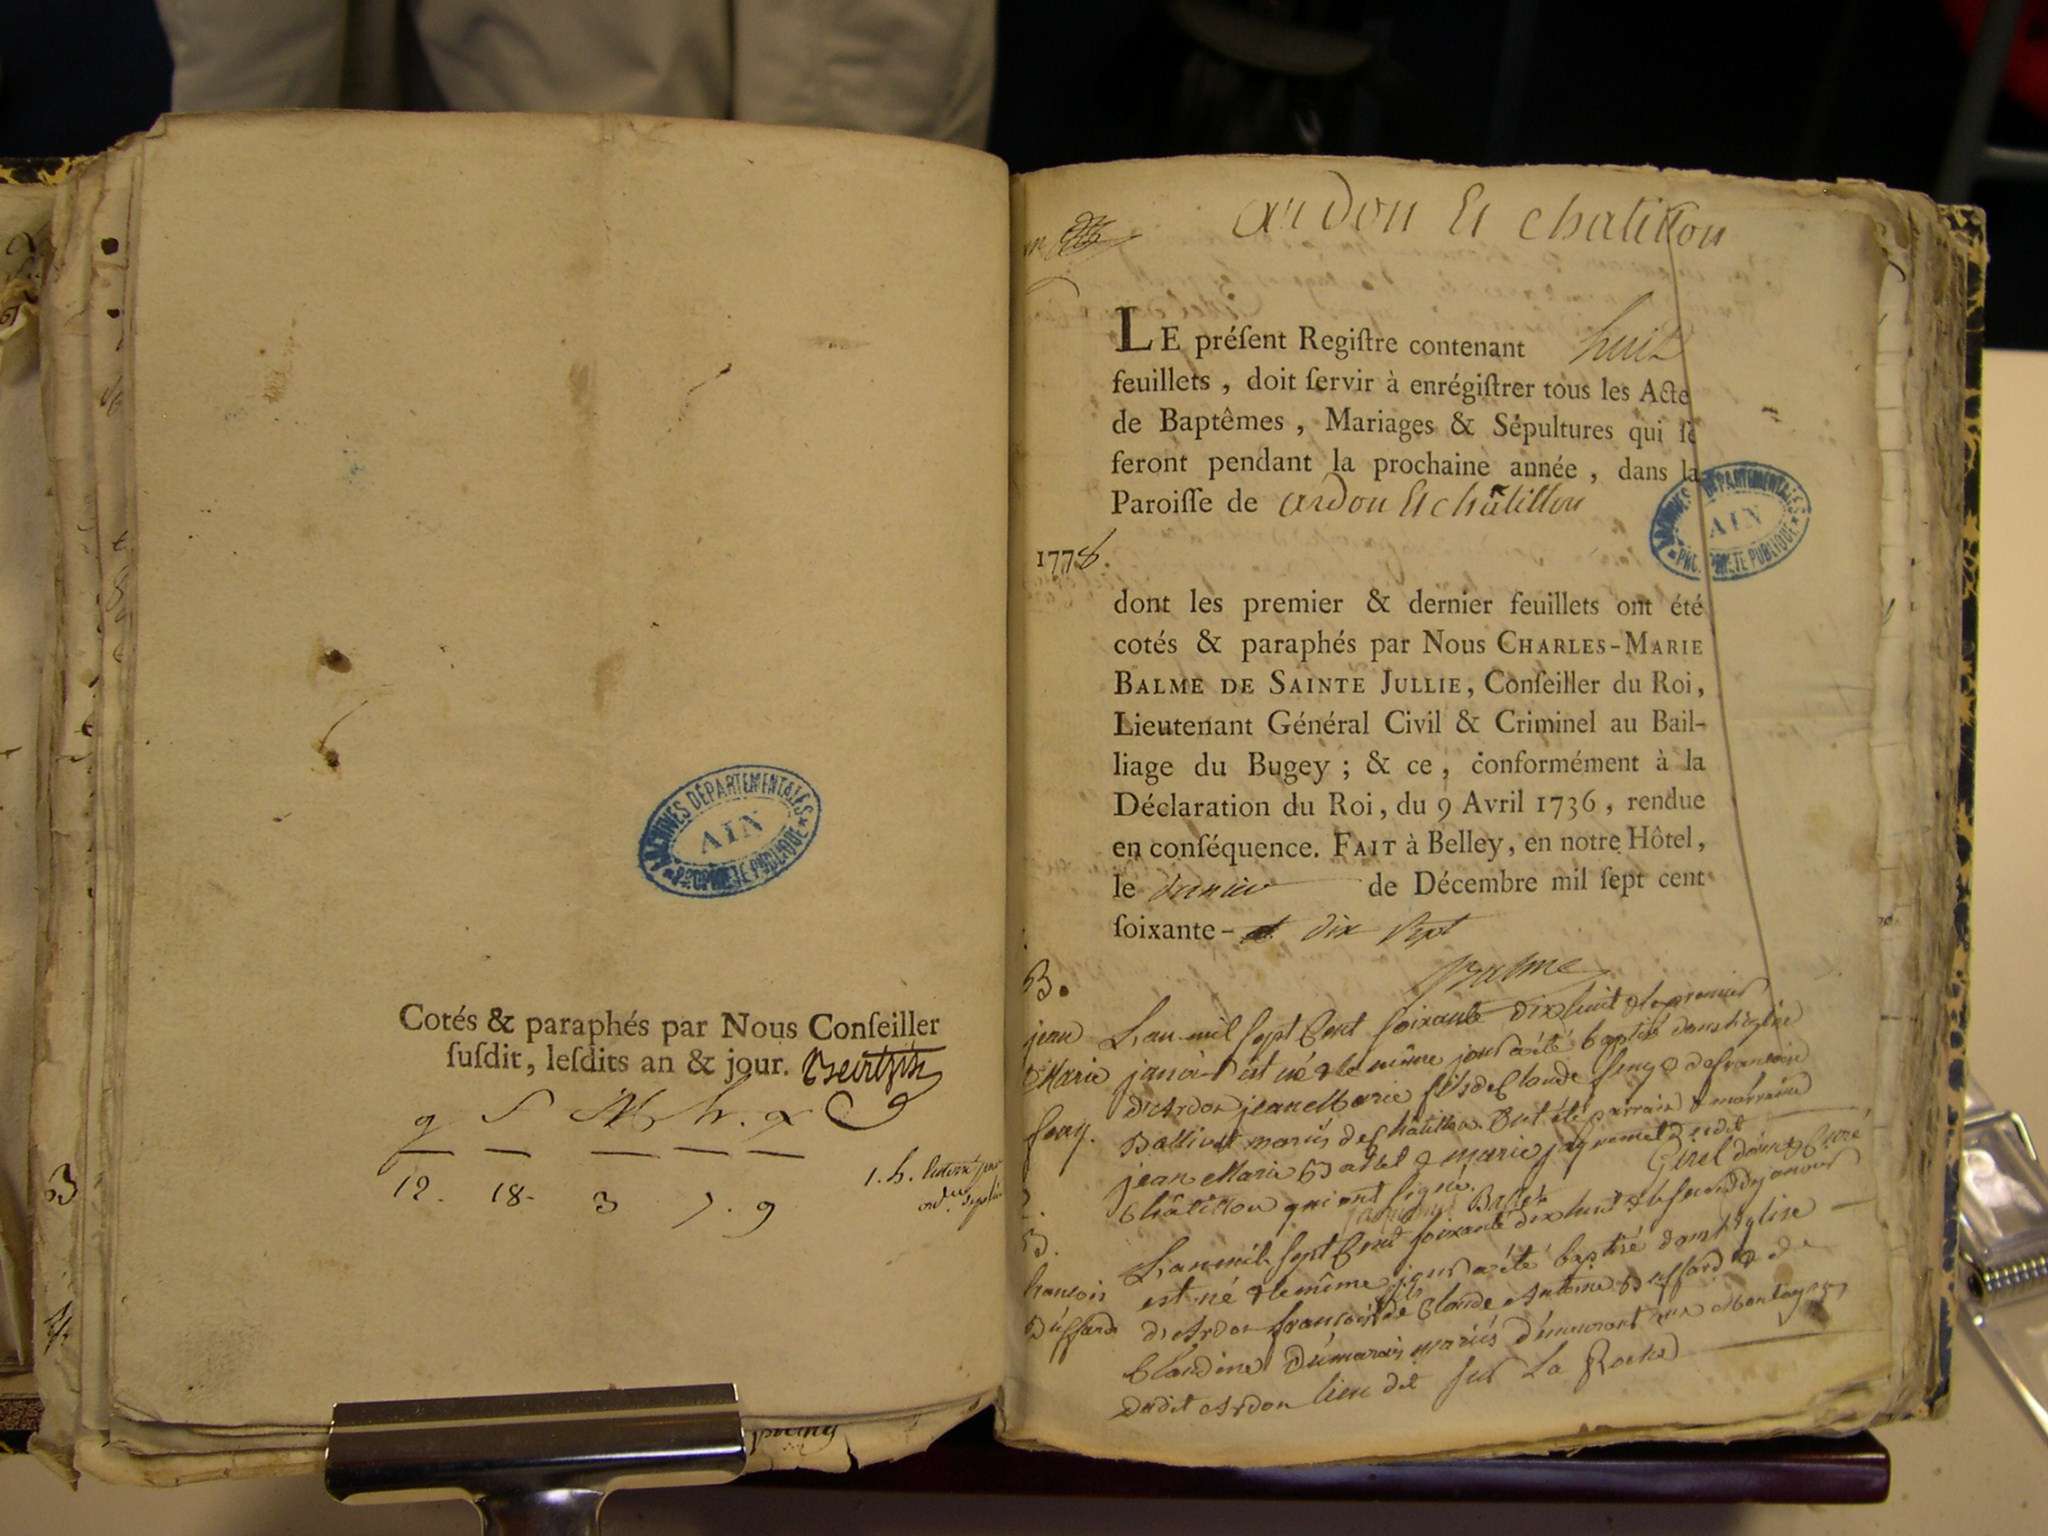 ARCHIVES DÉPARTEMENTALES
AIN
PROPRIÉTÉ PUBLIQUE
Cotés & paraphés par Nous Conſeiller
ſuſdit, leſdits an & jour.
12. 18. 3 7. 9
ardon Et chatillon
LE préſent Regiſtre contenant huit
feuillets, doit ſervir à enrégiſtrer tous les Acte
de Baptêmes, Mariages & Sépultures qui ſe
feront pendant la prochaine année, dans la
Paroiſſe de ardon Et châtillon
ARCHIVES DÉPARTEMENTALES
AIN
PROPRIÉTÉ PUBLIQUE
1778.
dont les premier & dernier feuillets ont été
cotés & paraphés par Nous CHARLES-MARIE
BALME DE SAINTE JULLIE, Conſeiller du Roi,
Lieutenant Général Civil & Criminel au Bail-
liage du Bugey; & ce, conformément à la
Déclaration du Roi, du 9 Avril 1736, rendue
en conſéquence. FAIT à Belley, en notre Hôtel,
le dernier de Décembre mil ſept cent
ſoixante- et dix sept
Balme
B.
jean
Marie
L'an mil sept Cent soixante dix huit & le premier
janvier est né & le même jour a été baptisé dans l'église
d'Ardon jean Marie fils de Claude & de francoise
mariés de Châtillon. Ont été parrain & marraine
jean Marie Ballet & marie dudit
Châtillon qui ont signé.
B.
francois
Buffard
L'an mil sept Cent soixante dix huit & le second janvier
est né & le même jour a été baptisé dans l'église
d'Ardon francois fils de Claude Antoine Buffard & de
Claudine mariés demeurant
dudit Ardon lieu dit sur La Roche